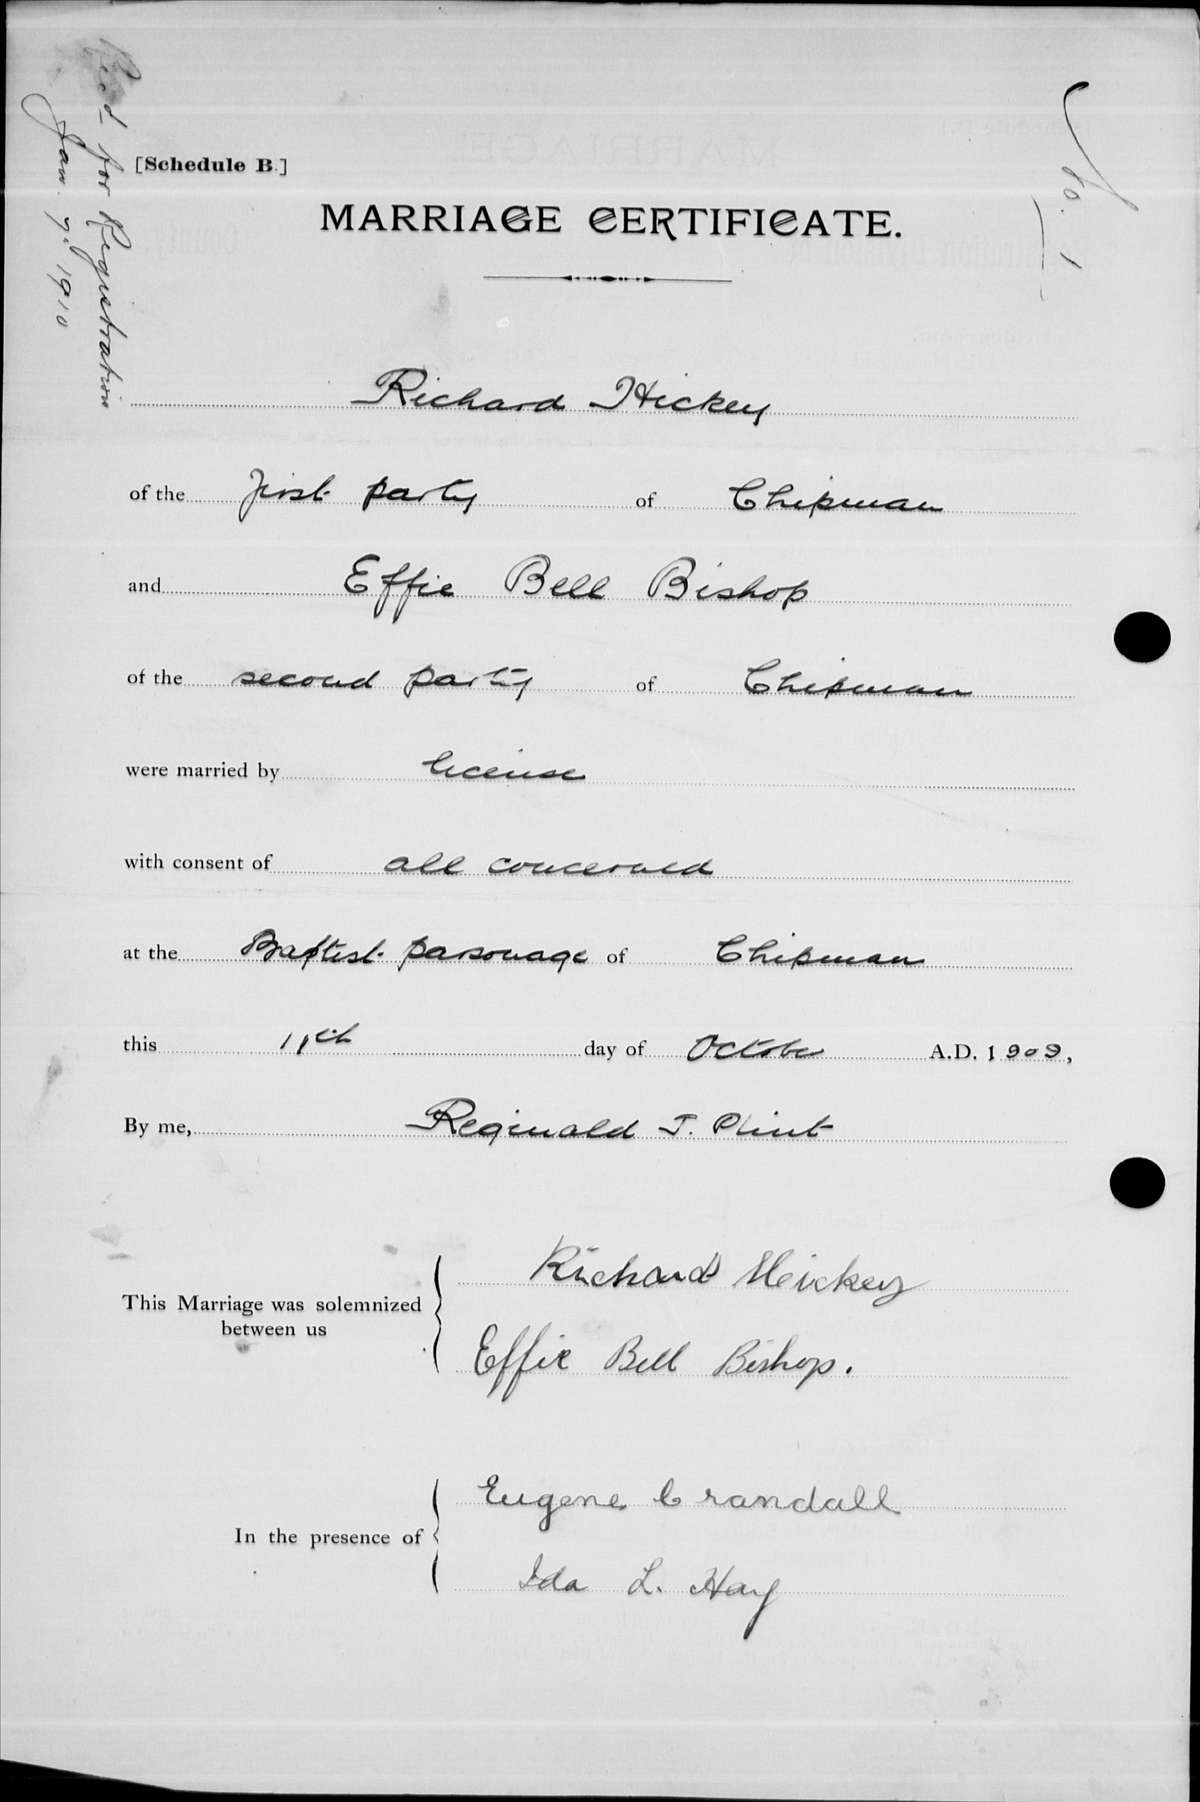 Rec'd for Registration
Jan. 7. 1910
No. 1
[Schedule B.]
MARRIAGE CERTIFICATE.
Richard Hickey
of the first party of Chipman
and Effie Bell Bishop
of the second party of Chipman
were married by license
with consent of all concerned
at the Baptist parsonage of Chipman
this 11th day of October A.D. 1909,
By me, Reginald J. Plint
Richard Hickey
This Marriage was solemnized
between us
Effie Bell Bishop.
Eugene Crandall
In the presence of
Ida L. Hay